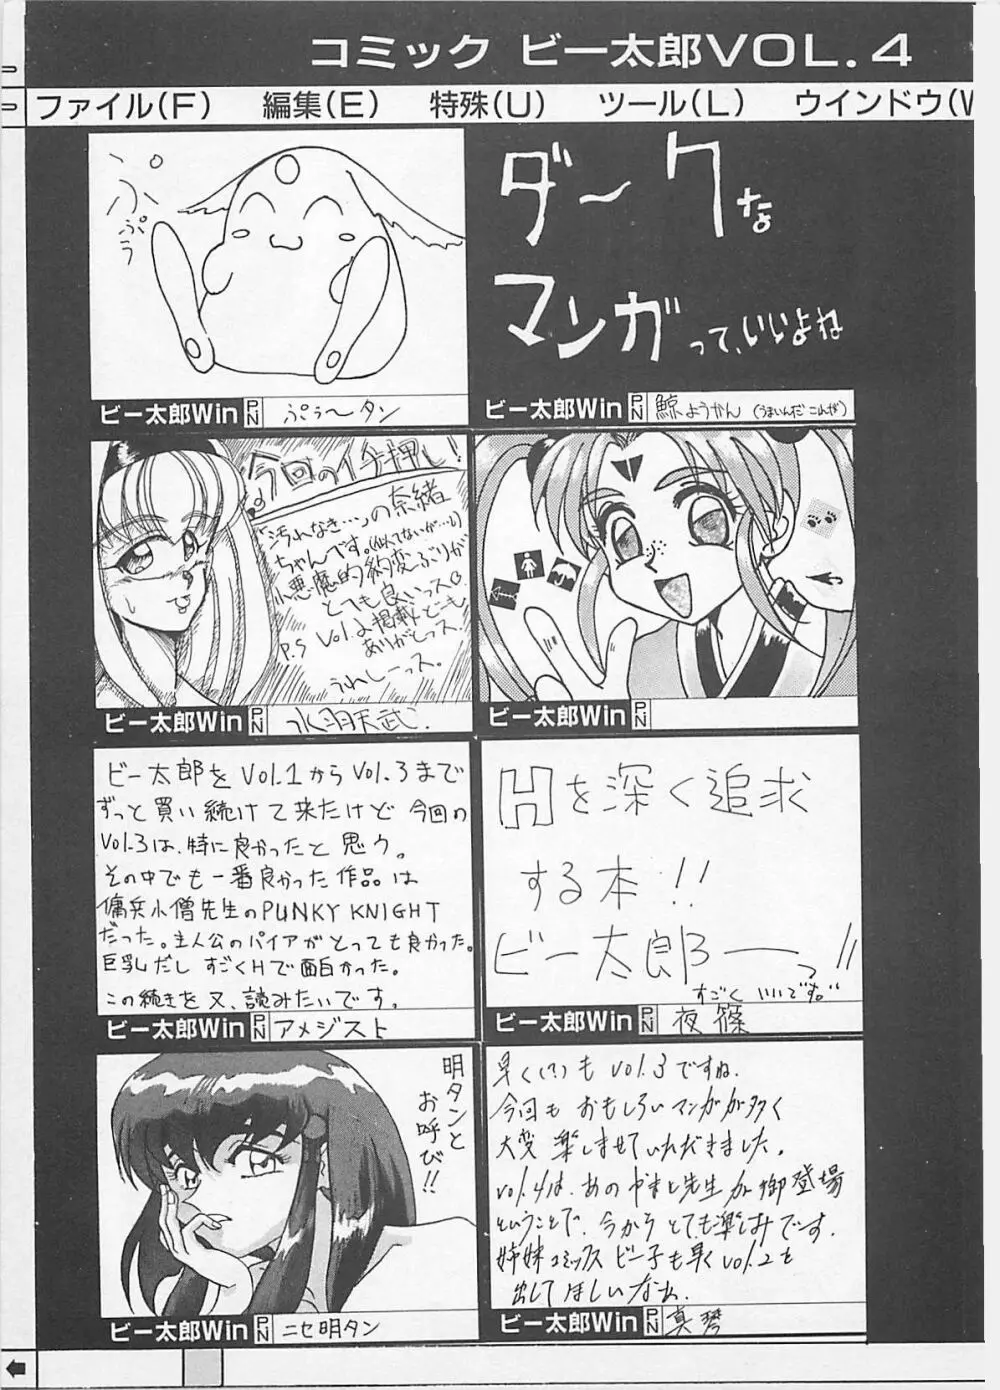 コミック ビー太郎VOL.4
ファイル(F) 編集(E) 特殊(U) ツール(L) ウインドウ(W
ぷ
ぷぅ
ビー太郎Win PN ぷぅ〜タン
ダ〜クな
マンガって、いいよね
ビー太郎Win PN 鯨ようかん (うまいんだこれが)
今回のイチ押し!
「汚れなき…」の奈緒
ちゃんです。(似てないが…)
小悪魔的豹変ぶりが
とても良いっス。
P.S Vol.2掲載どーも
ありがとっス。
うれしーっス。
ビー太郎Win PN 水羽天武
ビー太郎Win PN
ビー太郎をVol.1からVol.3まで
ずっと買い続けて来たけど今回の
Vol.3は、特に良かったと思う。
その中でも一番良かった作品は
傭兵小僧先生のPUNKY KNIGHT
だった。主人公のパイアがとっても良かった。
巨乳だしすごくHで面白かった。
この続きを又、読みたいです。
ビー太郎Win PN アメジスト
Hを深く追求
する本!!
ビー太郎ーっ!!
すごくいいです。
ビー太郎Win PN 夜篠
明タンと
お呼び!!
ビー太郎Win PN ニセ明タン
早く(?)もVol.3ですね。
今回もおもしろいマンガが多く
大変楽しませていただきました。
Vol.4は、あのやまと先生が御登場
ということで、今からとても楽しみです。
姉妹コミックスビー子も早くVol.2を
出してほしいなぁ。
ビー太郎Win PN 真琴